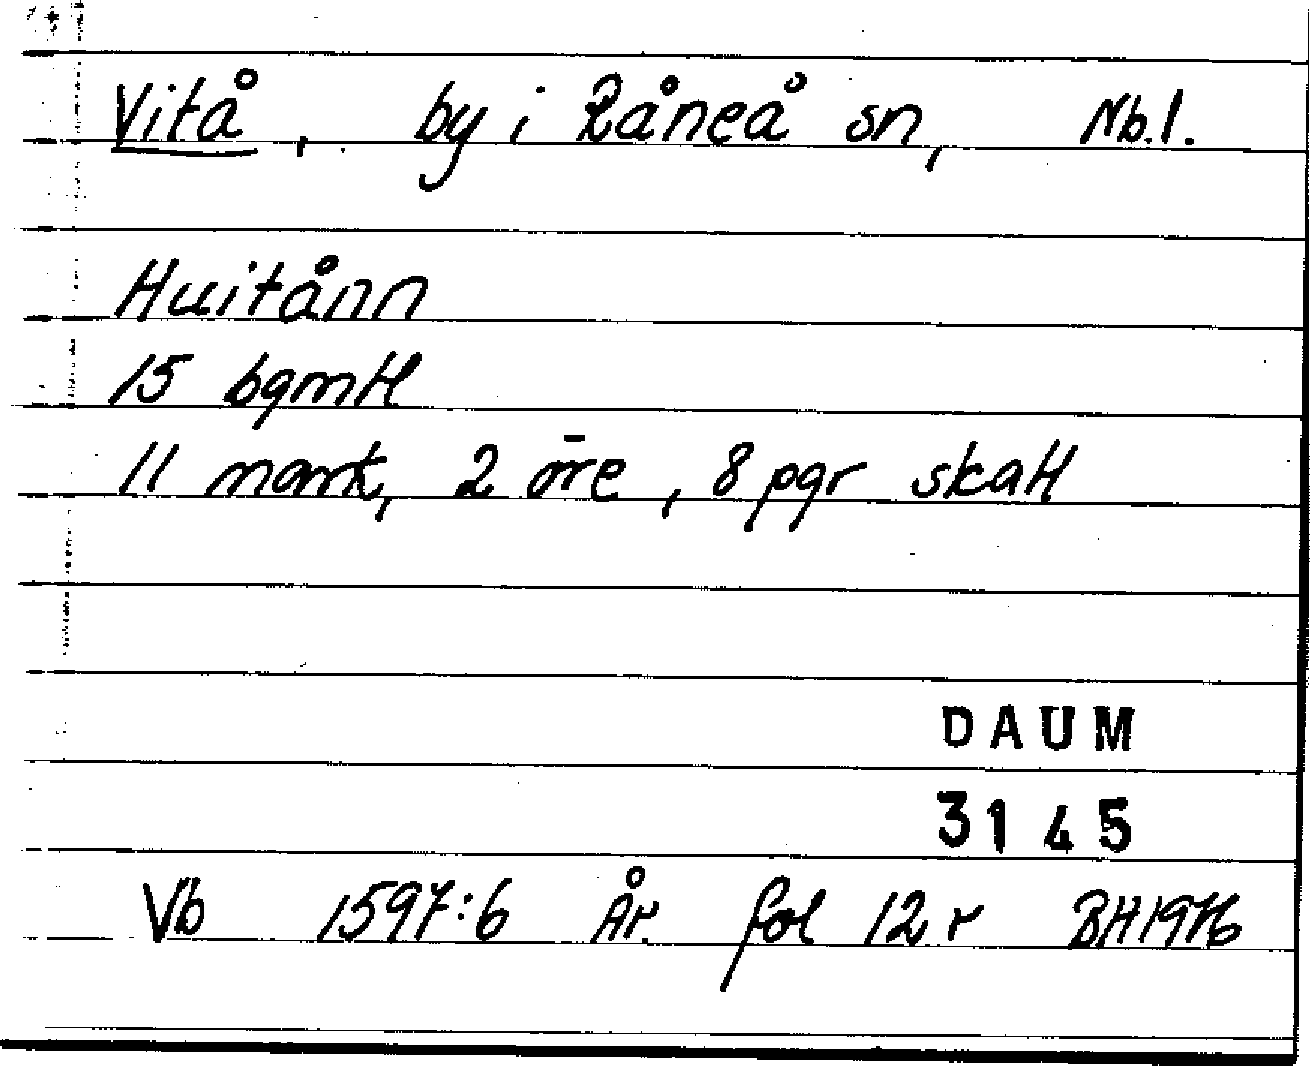 Vitå, by i Råneå sn, Nb.l.
Huitånn
15 bgmtl
11 mark, 2 öre, 8 pgr skatt
DAUM
3145
Vb 1597:6 År fol 12 r BH1976